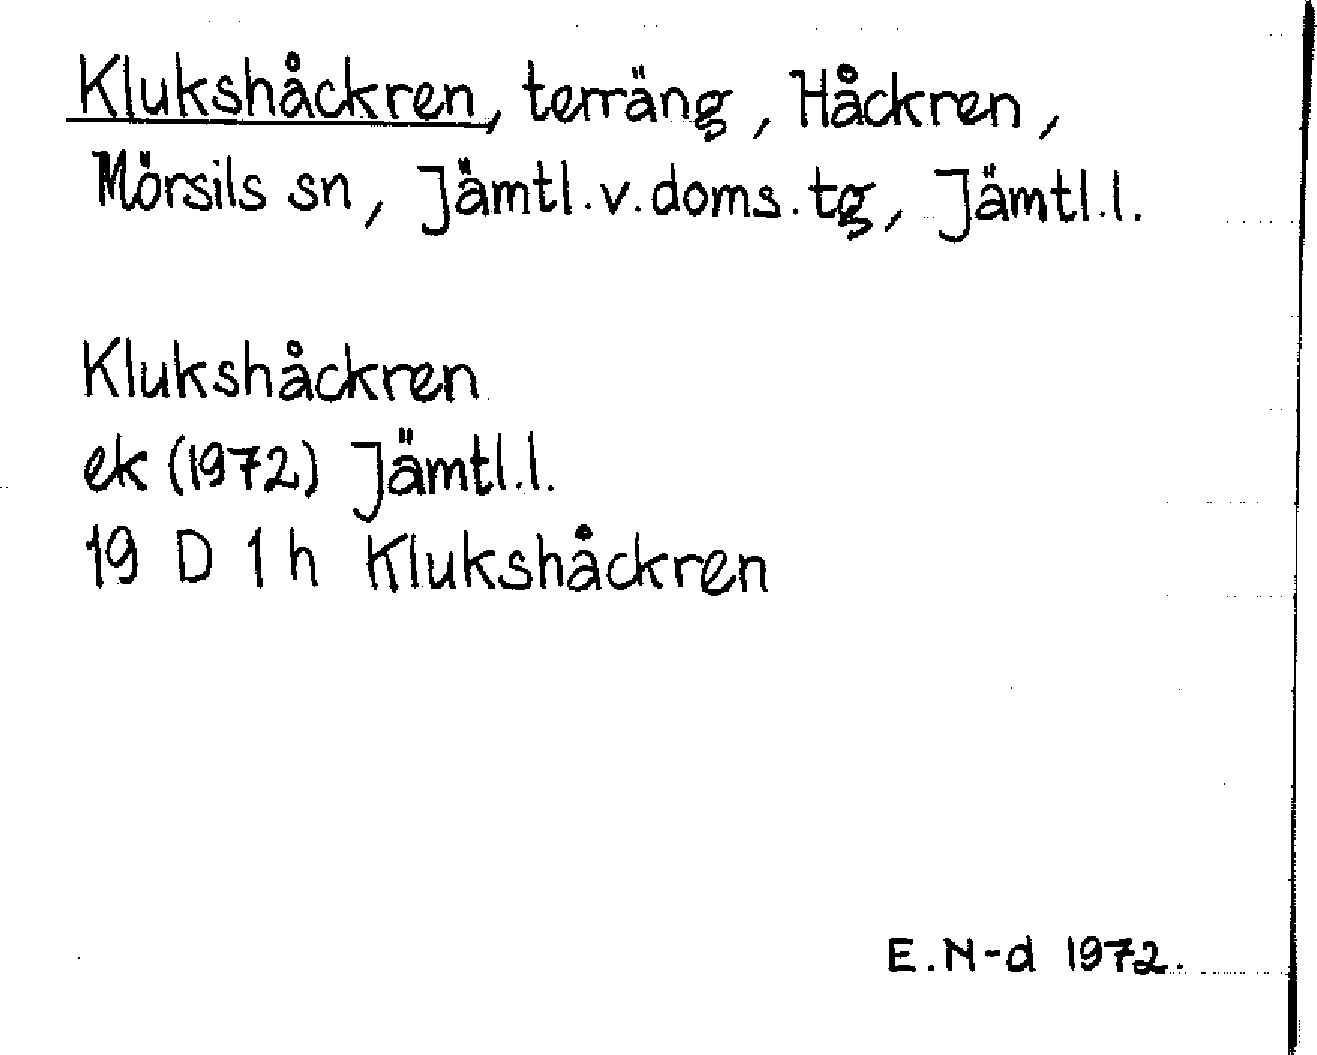 Klukshåckren, terräng, Håckren,
Mörsils sn, Jämtl.v.doms.tg, Jämtl.l.
Klukshåckren
ek (1972) Jämtl.l.
19 D 1h Klukshåckren
E.N-d 1972.